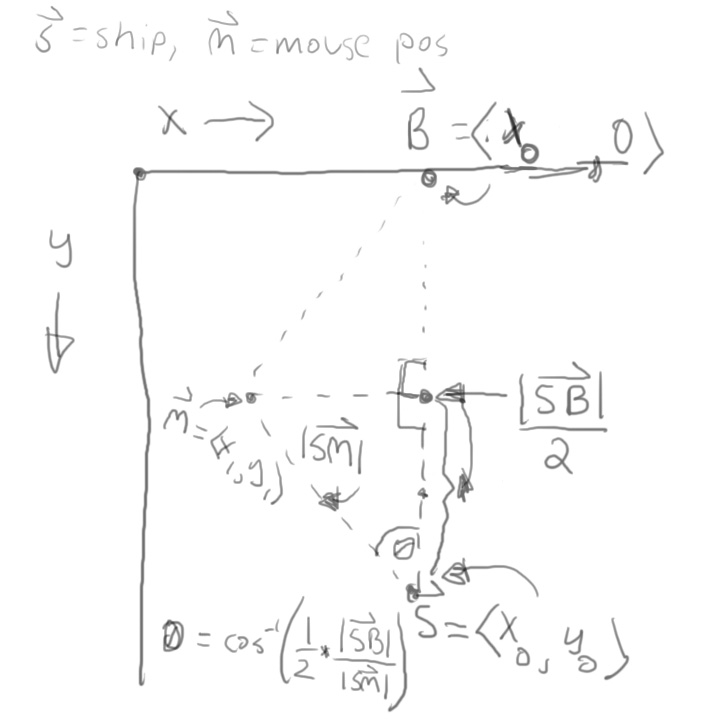 s⃗ = ship, m⃗ = mouse pos
x → B⃗ = ⟨x₀ 0⟩
y
↓
m⃗ = ⟨x₁, y₁⟩
|SM⃗|
|SB⃗| / 2
θ
S = ⟨x₀, y₀⟩
θ = cos⁻¹(1/2 * |SB⃗| / |SM⃗|)